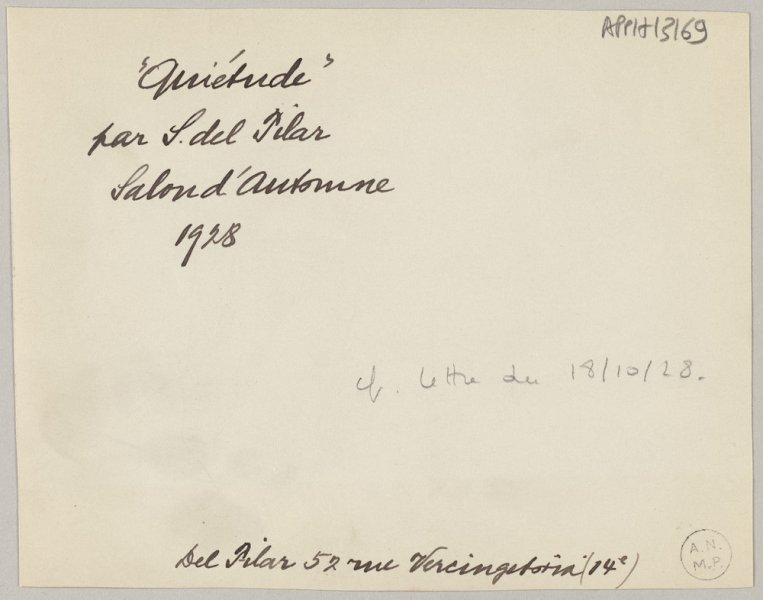 APPH13169
"Quiétude"
par S. del Pilar
Salon d'Automne
1928
cf. lettre du 18/10/28.
Del Pilar 52 rue Vercingetorix (14e)
A.N.
M.P.